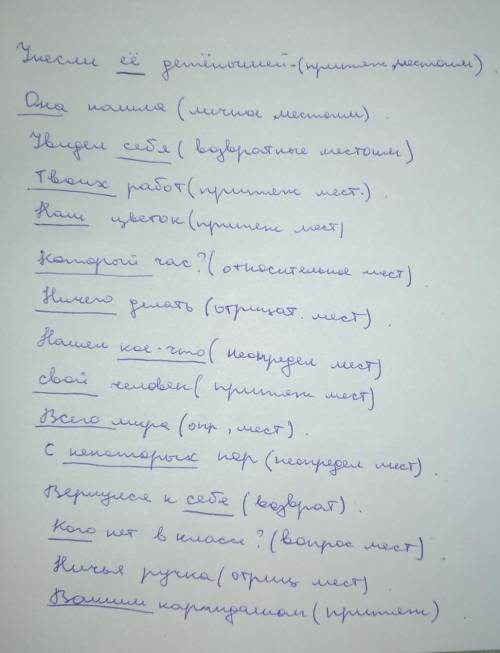 Унесли её детёнышей-(притяж, местоим).
Она нашла (личное местоим).
Увидел себя (возвратные местоим)
Твоих работ (притяж мест.)
Наш цветок (притяж мест)
Который час? (относительное мест)
Ничего делать (отрицат. мест).
Нашел кое-что (неопредел мест)
свой человек (притяж мест)
Всего мира (опр, мест).
С некоторых пор (неопредел мест).
Вернулся к себе (возврат).
Кого нет в классе? (вопрос мест)
Ничья ручка (отриц мест).
Вашим карандашом (притяж)